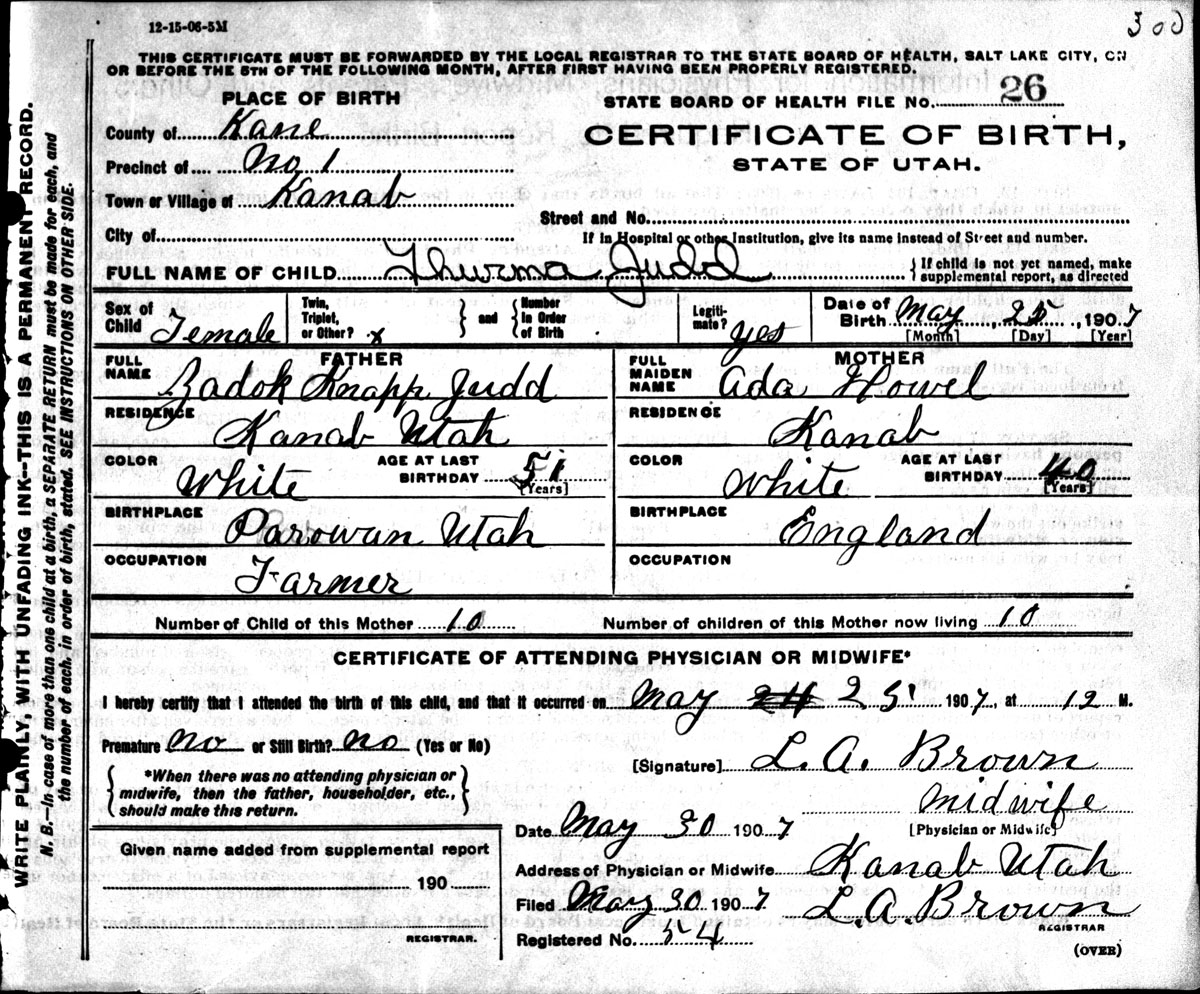 12-15-06-5M
300
THIS CERTIFICATE MUST BE FORWARDED BY THE LOCAL REGISTRAR TO THE STATE BOARD OF HEALTH, SALT LAKE CITY, ON
OR BEFORE THE 5TH OF THE FOLLOWING MONTH, AFTER FIRST HAVING BEEN PROPERLY REGISTERED.
PLACE OF BIRTH
STATE BOARD OF HEALTH FILE NO. 26
County of Kane
CERTIFICATE OF BIRTH,
Precinct of No 1
STATE OF UTAH.
Town or Village of Kanab
Street and No.
City of
If in Hospital or other Institution, give its name instead of Street and number.
FULL NAME OF CHILD Thurma Judd
If child is not yet named, make
supplemental report, as directed
Sex of Child Female
Twin, Triplet, or Other? x
and
Number in Order of Birth
Legiti-mate? yes
Date of Birth May 25, 1907
[Month] [Day] [Year]
FATHER
FULL NAME Zadok Knapp Judd
RESIDENCE Kanab Utah
COLOR White
AGE AT LAST BIRTHDAY 51
[Years]
BIRTHPLACE Parowan Utah
OCCUPATION Farmer
MOTHER
FULL MAIDEN NAME Ada Howel
RESIDENCE Kanab
COLOR White
AGE AT LAST BIRTHDAY 40
[Years]
BIRTHPLACE England
OCCUPATION
Number of Child of this Mother 10
Number of children of this Mother now living 10
CERTIFICATE OF ATTENDING PHYSICIAN OR MIDWIFE*
I hereby certify that I attended the birth of this child, and that it occurred on May 24 25 1907, at 12 M.
Premature no or Still Birth? no (Yes or No)
[Signature] L. A. Brown
*When there was no attending physician or
midwife, then the father, householder, etc.,
should make this return.
midwife
[Physician or Midwife]
Date May 30 1907
Given name added from supplemental report
190
REGISTRAR.
Address of Physician or Midwife Kanab Utah
Filed May 30 1907 L.A. Brown
REGISTRAR
Registered No. 54
(OVER)
WRITE PLAINLY, WITH UNFADING INK--THIS IS A PERMANENT RECORD.
N. B.—In case of more than one child at a birth, a SEPARATE RETURN must be made for each, and
the number of each, in order of birth, stated. SEE INSTRUCTIONS ON OTHER SIDE.